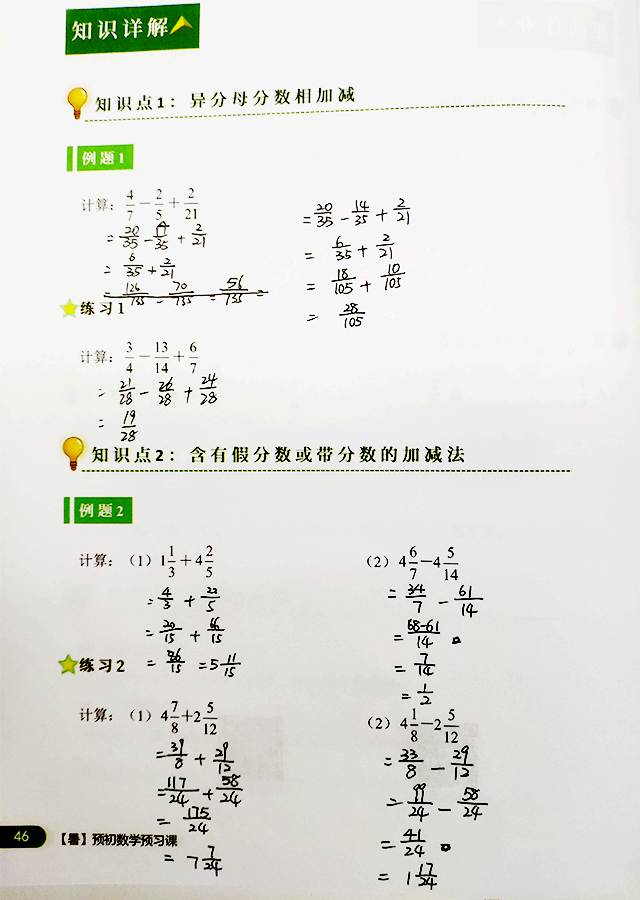 知识详解
知识点1：异分母分数相加减
例题1
计算：4/7－2/5＋2/21
= 20/35 - 14/35 + 2/21
= 6/35 + 2/21
= 126/735 - 70/735 = 56/735 =
= 20/35 - 14/35 + 2/21
= 6/35 + 2/21
= 18/105 + 10/105
= 28/105
练习1
计算：3/4－13/14＋6/7
= 21/28 - 26/28 + 24/28
= 19/28
知识点2：含有假分数或带分数的加减法
例题2
计算：（1）1 1/3＋4 2/5
= 4/3 + 22/5
= 20/15 + 66/15
= 86/15 = 5 11/15
（2）4 6/7－4 5/14
= 34/7 - 61/14
= 68-61/14
= 7/14
= 1/2
练习2
计算：（1）4 7/8＋2 5/12
= 39/8 + 29/12
= 117/24 + 58/24
= 175/24
= 7 7/24
（2）4 1/8－2 5/12
= 33/8 - 29/12
= 99/24 - 58/24
= 41/24
= 1 17/24
46 【暑】预初数学预习课